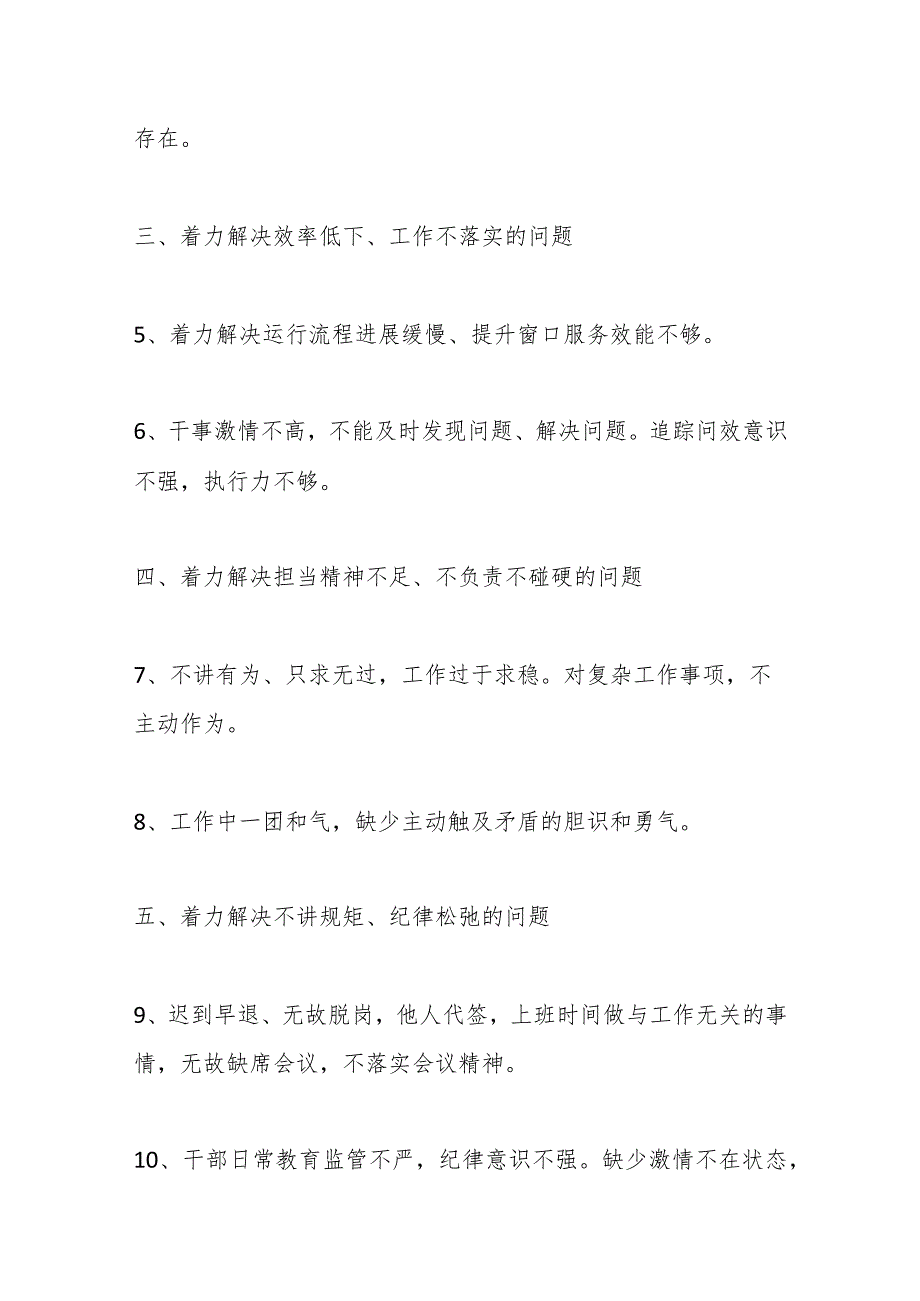 存在。
三、着力解决效率低下、工作不落实的问题
5、着力解决运行流程进展缓慢、提升窗口服务效能不够。
6、干事激情不高，不能及时发现问题、解决问题。追踪问效意识
不强，执行力不够。
四、着力解决担当精神不足、不负责不碰硬的问题
7、不讲有为、只求无过，工作过于求稳。对复杂工作事项，不
主动作为。
8、工作中一团和气，缺少主动触及矛盾的胆识和勇气。
五、着力解决不讲规矩、纪律松弛的问题
9、迟到早退、无故脱岗，他人代签，上班时间做与工作无关的事
情，无故缺席会议，不落实会议精神。
10、干部日常教育监管不严，纪律意识不强。缺少激情不在状态，